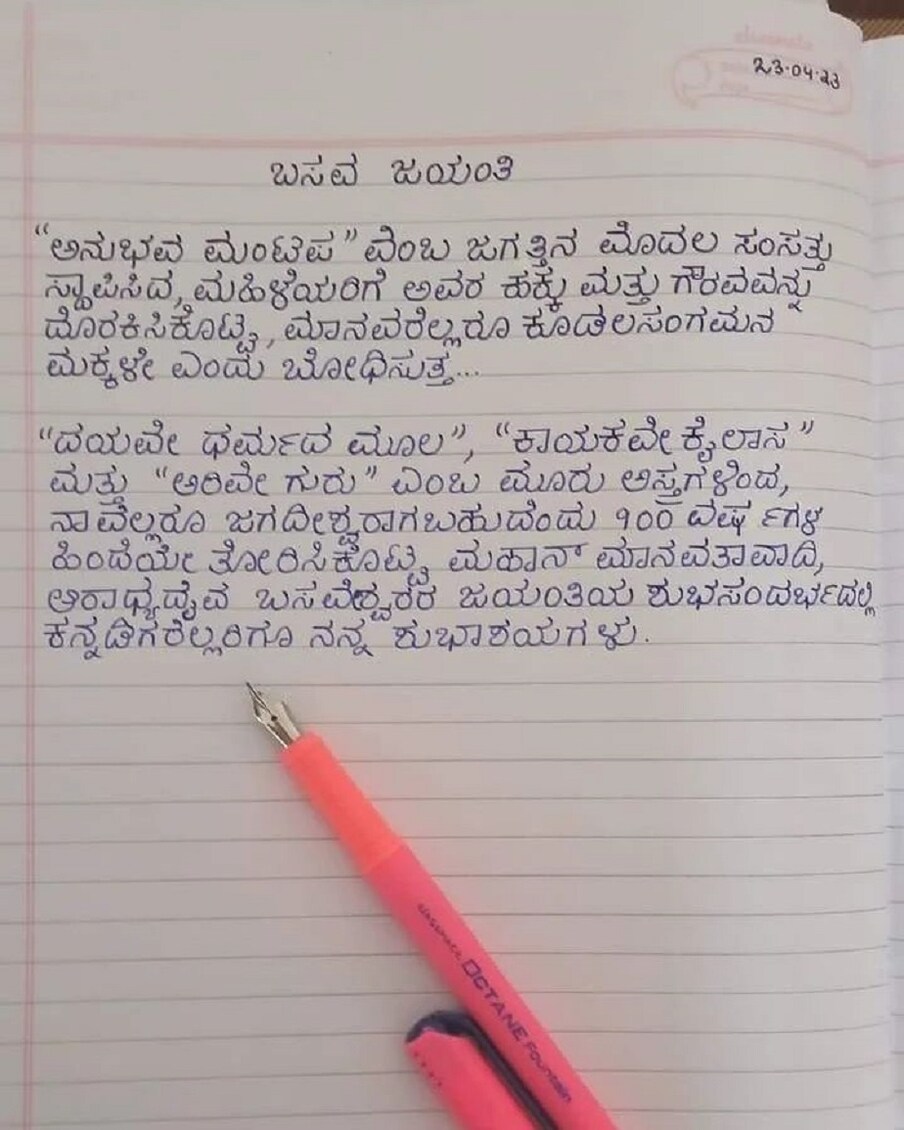 23-04-23
ಬಸವ ಜಯಂತಿ
“ಅನುಭವ ಮಂಟಪ” ವೆಂಬ ಜಗತ್ತಿನ ಮೊದಲ ಸಂಸತ್ತು
ಸ್ಥಾಪಿಸಿದ, ಮಹಿಳೆಯರಿಗೆ ಅವರ ಹಕ್ಕು ಮತ್ತು ಗೌರವವನ್ನು
ದೊರಕಿಸಿಕೊಟ್ಟ, ಮಾನವರೆಲ್ಲರೂ ಕೂಡಲಸಂಗಮನ
ಮಕ್ಕಳೇ ಎಂದು ಬೋಧಿಸುತ್ತ...
“ದಯವೇ ಧರ್ಮದ ಮೂಲ”, “ಕಾಯಕವೇ ಕೈಲಾಸ”
ಮತ್ತು “ಅರಿವೇ ಗುರು” ಎಂಬ ಮೂರು ಅಸ್ತ್ರಗಳಿಂದ,
ನಾವೆಲ್ಲರೂ ಜಗದೀಶ್ವರಾಗಬಹುದೆಂದು ೧೦೦ ವರ್ಷಗಳ
ಹಿಂದೆಯೇ ತೋರಿಸಿಕೊಟ್ಟ ಮಹಾನ್ ಮಾನವತಾವಾದಿ,
ಆರಾಧ್ಯದೈವ ಬಸವೇಶ್ವರರ ಜಯಂತಿಯ ಶುಭಸಂದರ್ಭದಲ್ಲಿ
ಕನ್ನಡಿಗರೆಲ್ಲರಿಗೂ ನನ್ನ ಶುಭಾಶಯಗಳು.
classmate OCTANE Fountain